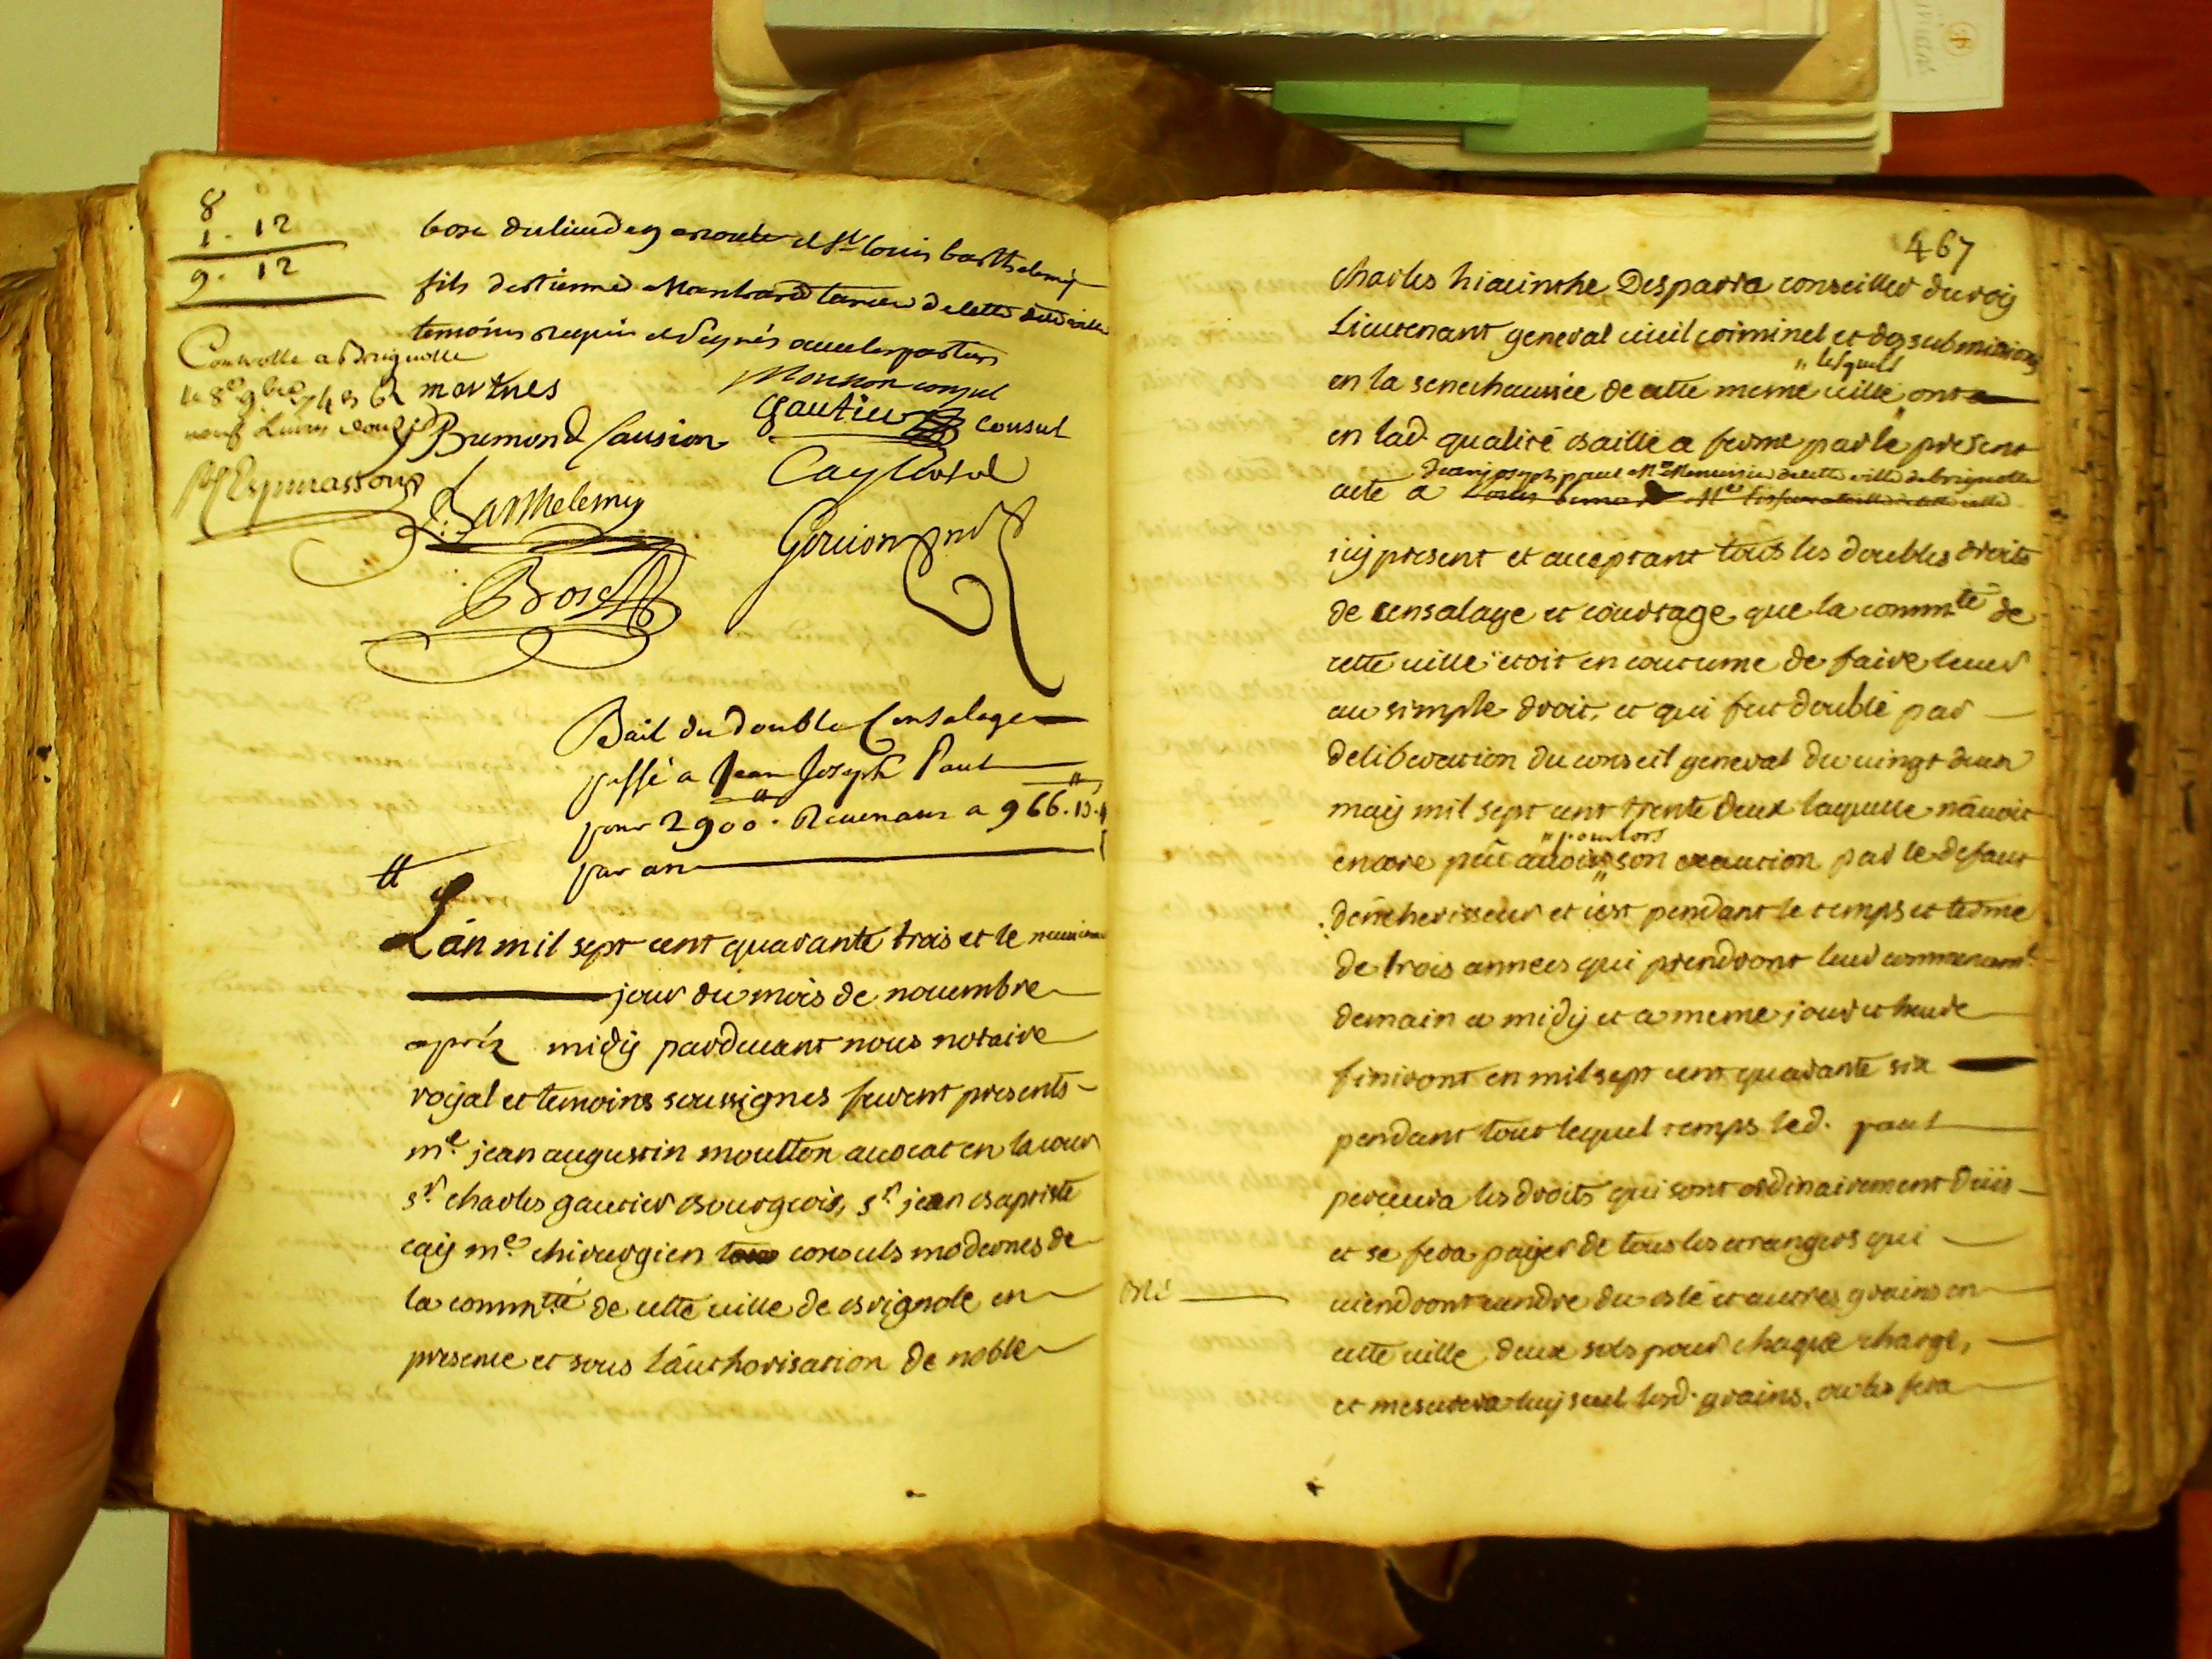 8
1 - 12
9 - 12
bosc du lieu den et Sr louis barthelemy
fils destienne de cette dite ville
temoins requis et signés avec les parties
Controllé a Brignolle
le 8e 9bre 1743 R
neuf Livres douze s
martnes
Mouttoon consul
Gautier consul
Bremond Caution
Cay Consul
Espinassous
L. Barthelemy
Gouion nre
Bosc
Bail du double Censalage
passé a Jean Joseph Paul
pour 2900# Revenant a 966# 13. 4
par an
#
L'án mil sept cent quarante trois et le neuvieme
jour du mois de nouembre
aprés midÿ pardeuant nous notaire
roÿal et temoins soussignes furent presents
me. jean augustin moutton auocat en la cour
sr. charles gautier bourgeois, sr. jean baptiste
caÿ me. chirurgien tous consuls modernes de
la commté de cette uille de brignole en
presence et sous láuthorisation de noble
467
charles hiacinthe Desparra conseiller du roÿ
Lieutenant general ciuil criminel et des submissions
" lesquels
en la senechaussée de cette meme uille " ont
en lad. qualité baillé a ferme par le present
Jean joseph paul Me Menuisier de cette ville de brignolle
acte a Louis
icÿ present et acceptant tous les doubles droits
de censalage et courtage que la commté de
cette uille etoit en coutume de faire leuer
au simple droit, et qui fut doublé par
deliberation du conseil general du uingt deux
maÿ mil sept cent trente deux laquelle náuoit
" pour lors
encore pûe auoir " son execution par le defaut
déncherisseur et cést pendant le temps et terme
de trois annees qui prendront leur commencemt.
demain a midÿ et a meme jour et heure
finiront en mil sept cent quarante six
pendant tout lequel temps led. paul
perceura les droits qui sont ordinairement deûs
et se fera paÿer de tous les etrangers qui
blé
uiendront uendre du blé et autres grains en
cette uille, deux sols pour chaque charge,
et mesurera luÿ seul lesd. grains, ou les fera